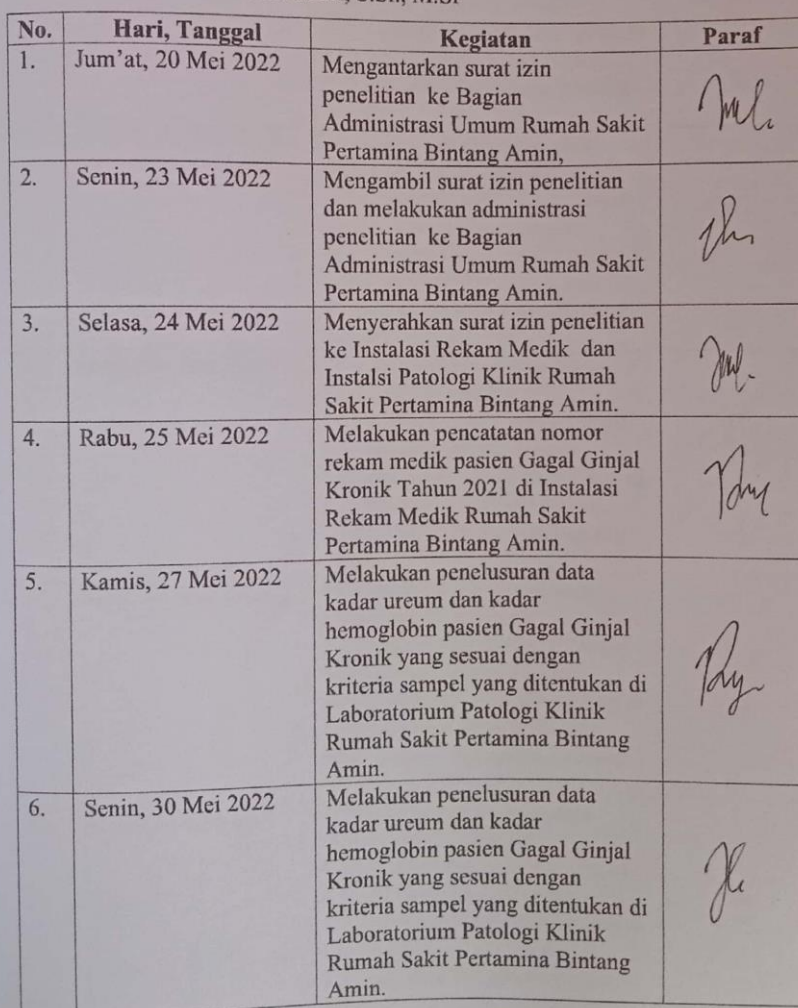 No. Hari, Tanggal Kegiatan Paraf
1. Jum'at, 20 Mei 2022 Mengantarkan surat izin
penelitian ke Bagian
Administrasi Umum Rumah Sakit
Pertamina Bintang Amin,
2. Senin, 23 Mei 2022 Mengambil surat izin penelitian
dan melakukan administrasi
penelitian ke Bagian
Administrasi Umum Rumah Sakit
Pertamina Bintang Amin.
3. Selasa, 24 Mei 2022 Menyerahkan surat izin penelitian
ke Instalasi Rekam Medik dan
Instalsi Patologi Klinik Rumah
Sakit Pertamina Bintang Amin.
4. Rabu, 25 Mei 2022 Melakukan pencatatan nomor
rekam medik pasien Gagal Ginjal
Kronik Tahun 2021 di Instalasi
Rekam Medik Rumah Sakit
Pertamina Bintang Amin.
5. Kamis, 27 Mei 2022 Melakukan penelusuran data
kadar ureum dan kadar
hemoglobin pasien Gagal Ginjal
Kronik yang sesuai dengan
kriteria sampel yang ditentukan di
Laboratorium Patologi Klinik
Rumah Sakit Pertamina Bintang
Amin.
6. Senin, 30 Mei 2022 Melakukan penelusuran data
kadar ureum dan kadar
hemoglobin pasien Gagal Ginjal
Kronik yang sesuai dengan
kriteria sampel yang ditentukan di
Laboratorium Patologi Klinik
Rumah Sakit Pertamina Bintang
Amin.